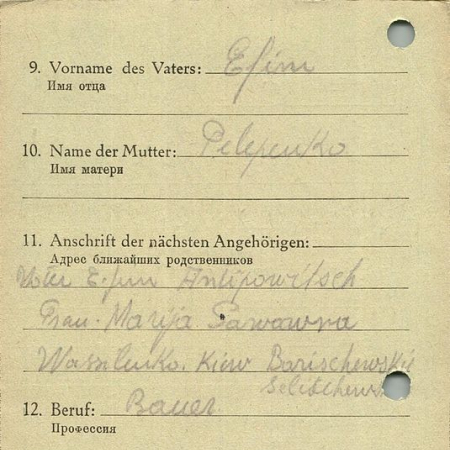 9. Vorname des Vaters: Efim
Имя отца
10. Name der Mutter: Pelepenko
Имя матери
11. Anschrift der nächsten Angehörigen:
Адрес ближайших родственников
Efim Antipowitsch
Frau Marija Sawawna
Wassilenko. Kiew Barischewskij
12. Beruf: Bauer
Профессия